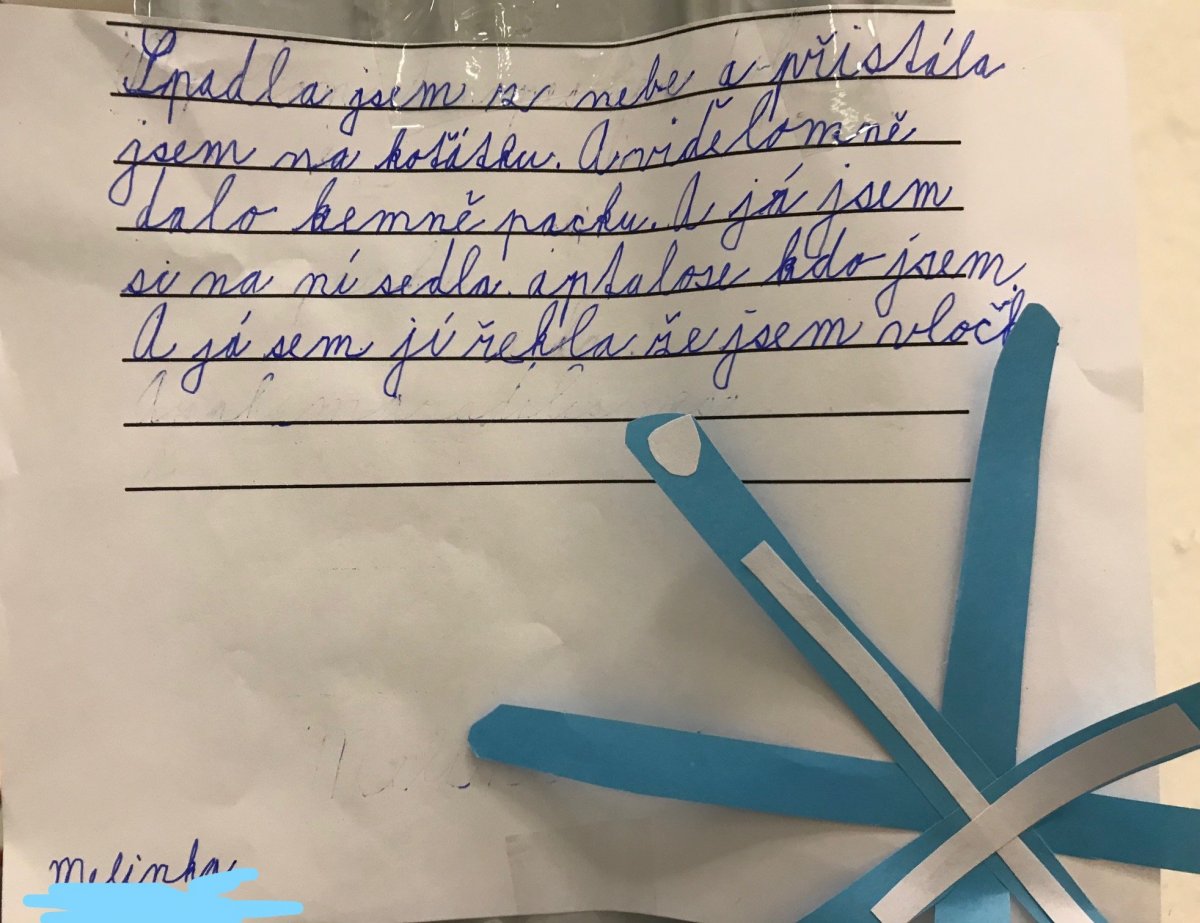 Spadla jsem z nebe a přistála
jsem na koťátku. A viďelo mně
dalo kemně packu. A já jsem
si na ní sedla. a ptalose kdo jsem.
A já sem jí řekla že jsem vločk
Melinka